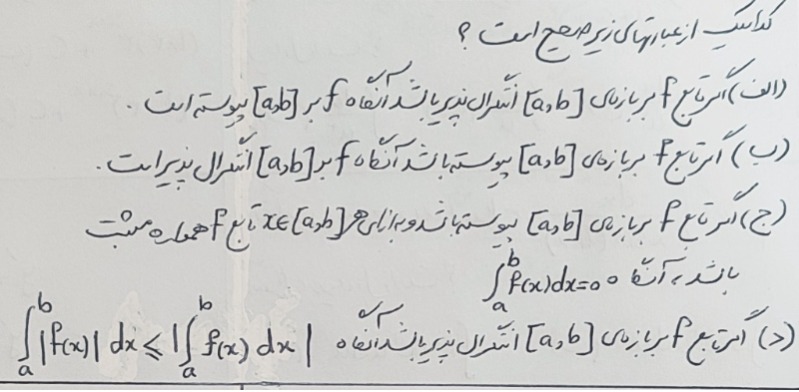 کدامیک از عبارتهای زیر صحیح است ؟
الف) اگر تابع f بر بازه‌ی [a,b] انتگرال پذیر باشد آنگاه f بر [a,b] پیوسته است .
ب) اگر تابع f بر بازه‌ی [a,b] پیوسته باشد آنگاه f بر [a,b] انتگرال پذیر است .
ج) اگر تابع f بر بازه‌ی [a,b] پیوسته باشد و به ازای هر x∈[a,b] تابع f همواره مثبت
باشد ، آنگاه ∫_a^b f(x)dx=0
د) اگر تابع f بر بازه‌ی [a,b] انتگرال پذیر باشد آنگاه ∫_a^b |f(x)| dx ≤ |∫_a^b f(x) dx|